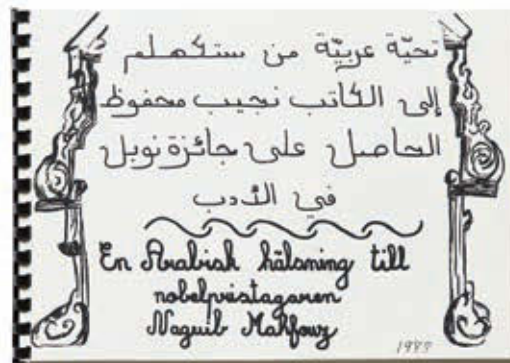 تحيّة عربيّة من ستكهلم
إلى الكاتب نجيب محفوظ
الحاصل على جائزة نوبل
في الأدب
En Arabisk hälsning till
nobelpristagaren
Naguib Mahfouz